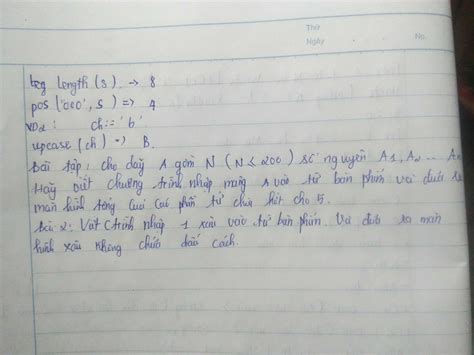 Thứ
Ngày
No.
length(s) → 8
pos('000', s) => 4
VD2: ch:= 'b'
upcase(ch) => B.
Bài tập: cho dãy A gồm N (N ≤ 200) số nguyên A1, A2 ... An
Hãy viết chương trình nhập mảng A vào từ bàn phím và đưa ra
màn hình tổng của các phần tử chia hết cho 5.
Bài 2: Viết ctrình nhập 1 xâu vào từ bàn phím. Và đưa ra màn
hình xâu không chứa dấu cách.